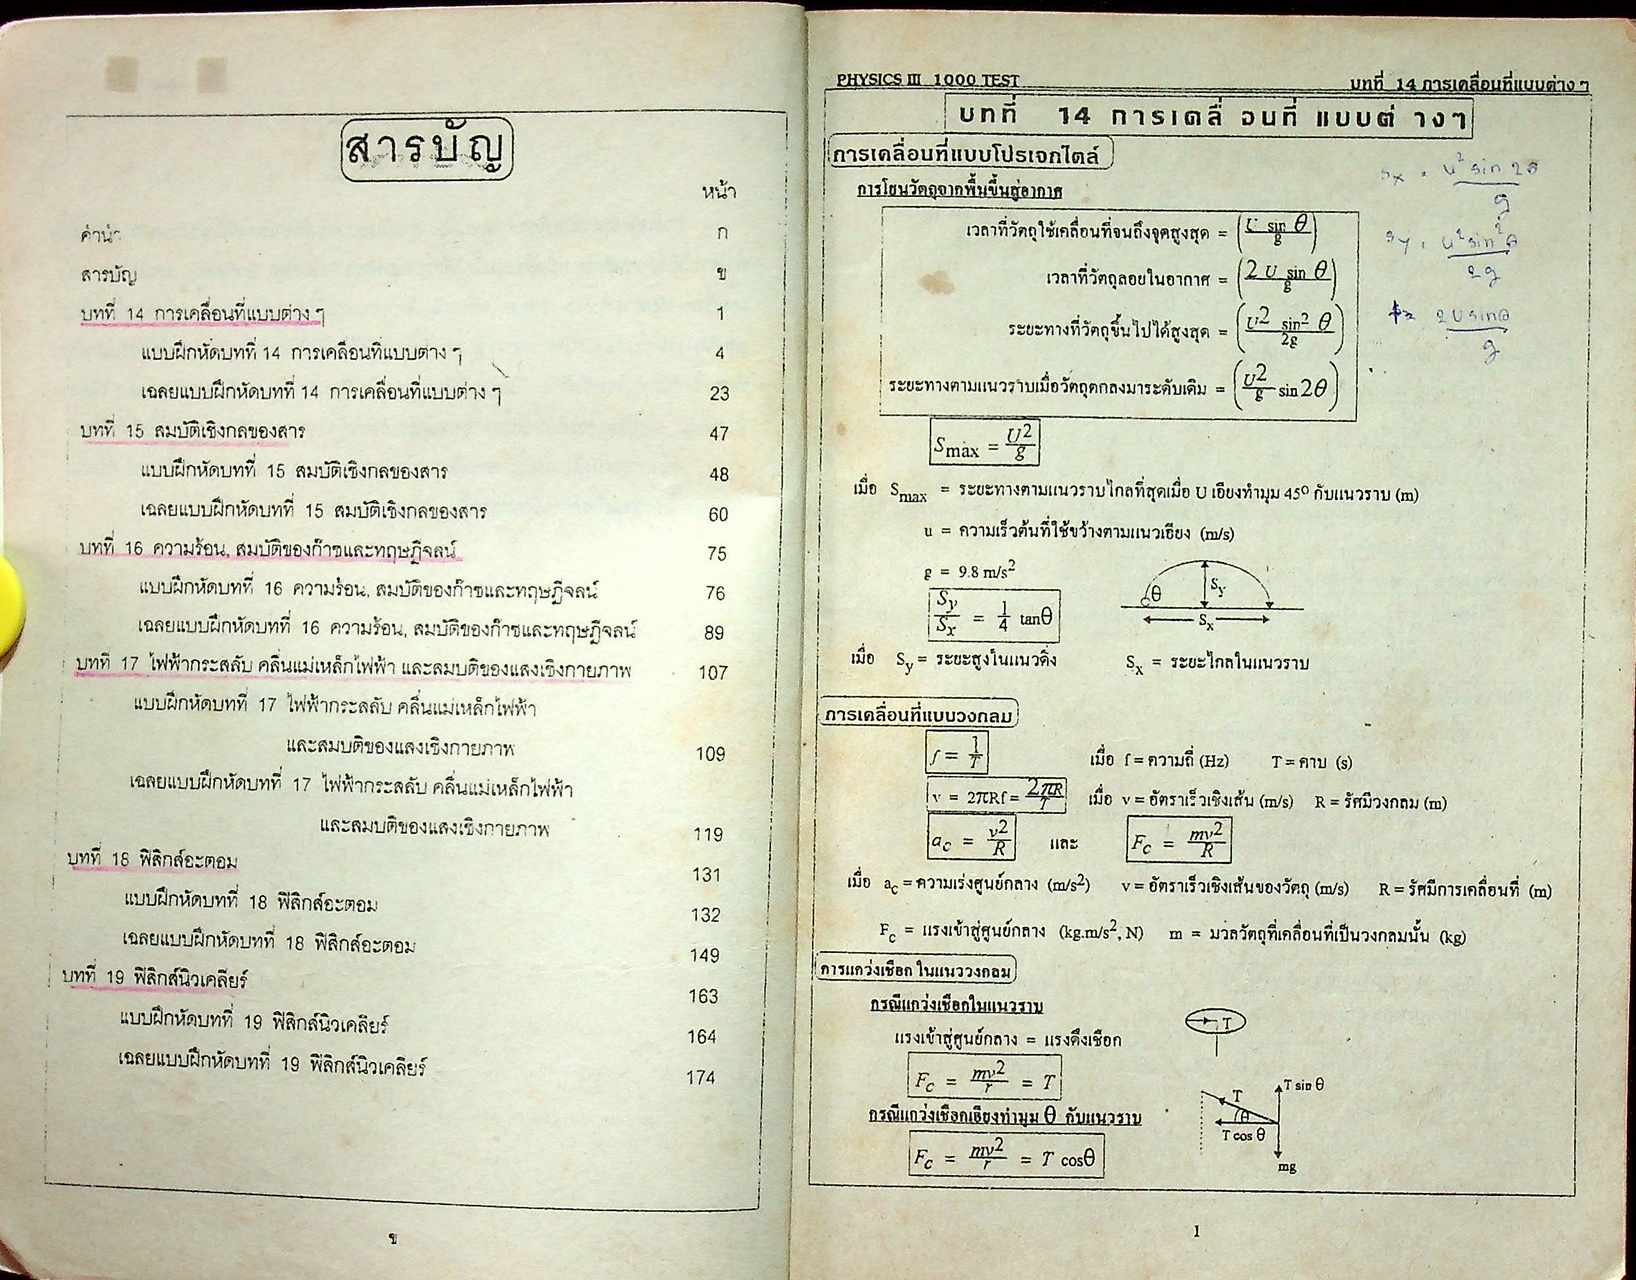 สารบัญ
หน้า
คำนำ ก
สารบัญ ข
บทที่ 14 การเคลื่อนที่แบบต่าง ๆ 1
แบบฝึกหัดบทที่ 14 การเคลื่อนที่แบบต่าง ๆ 4
เฉลยแบบฝึกหัดบทที่ 14 การเคลื่อนที่แบบต่าง ๆ 23
บทที่ 15 สมบัติเชิงกลของสาร 47
แบบฝึกหัดบทที่ 15 สมบัติเชิงกลของสาร 48
เฉลยแบบฝึกหัดบทที่ 15 สมบัติเชิงกลของสาร 60
บทที่ 16 ความร้อน, สมบัติของก๊าซและทฤษฎีจลน์ 75
แบบฝึกหัดบทที่ 16 ความร้อน, สมบัติของก๊าซและทฤษฎีจลน์ 76
เฉลยแบบฝึกหัดบทที่ 16 ความร้อน, สมบัติของก๊าซและทฤษฎีจลน์ 89
บทที่ 17 ไฟฟ้ากระสลับ คลื่นแม่เหล็กไฟฟ้า และสมบติของแสงเชิงกายภาพ 107
แบบฝึกหัดบทที่ 17 ไฟฟ้ากระสลับ คลื่นแม่เหล็กไฟฟ้า
และสมบติของแสงเชิงกายภาพ 109
เฉลยแบบฝึกหัดบทที่ 17 ไฟฟ้ากระสลับ คลื่นแม่เหล็กไฟฟ้า
และสมบติของแสงเชิงกายภาพ 119
บทที่ 18 ฟิสิกส์อะตอม 131
แบบฝึกหัดบทที่ 18 ฟิสิกส์อะตอม 132
เฉลยแบบฝึกหัดบทที่ 18 ฟิสิกส์อะตอม 149
บทที่ 19 ฟิสิกส์นิวเคลียร์ 163
แบบฝึกหัดบทที่ 19 ฟิสิกส์นิวเคลียร์ 164
เฉลยแบบฝึกหัดบทที่ 19 ฟิสิกส์นิวเคลียร์ 174
ข
PHYSICS III 1000 TEST บทที่ 14 การเคลื่อนที่แบบต่าง ๆ
บทที่ 14 การเคลื่อนที่แบบต่างๆ
การเคลื่อนที่แบบโปรเจกไตล์
การโยนวัตถุจากพื้นขึ้นสู่อากาศ
เวลาที่วัตถุใช้เคลื่อนที่จนถึงจุดสูงสุด = (U sin θ / g)
เวลาที่วัตถุลอยในอากาศ = (2 U sin θ / g)
ระยะทางที่วัตถุขึ้นไปได้สูงสุด = (U² sin² θ / 2g)
ระยะทางตามแนวราบเมื่อวัตถุตกลงมาระดับเดิม = (U²/g sin 2θ)
Sx = u² sin 2θ / g
Sy = u² sin² θ / 2g
2U sinθ / g
Smax = U²/g
เมื่อ Smax = ระยะทางตามแนวราบไกลที่สุดเมื่อ U เอียงทำมุม 45º กับแนวราบ (m)
u = ความเร็วต้นที่ใช้ขว้างตามแนวเอียง (m/s)
g = 9.8 m/s²
Sy/Sx = 1/4 tanθ
θ Sy
Sx
เมื่อ Sy = ระยะสูงในแนวดิ่ง Sx = ระยะไกลในแนวราบ
การเคลื่อนที่แบบวงกลม
f = 1/T เมื่อ f = ความถี่ (Hz) T = คาบ (s)
v = 2πRf = 2πR/T เมื่อ v = อัตราเร็วเชิงเส้น (m/s) R = รัศมีวงกลม (m)
ac = v²/R และ Fc = mv²/R
เมื่อ ac = ความเร่งศูนย์กลาง (m/s²) v = อัตราเร็วเชิงเส้นของวัตถุ (m/s) R = รัศมีการเคลื่อนที่ (m)
Fc = แรงเข้าสู่ศูนย์กลาง (kg.m/s², N) m = มวลวัตถุที่เคลื่อนที่เป็นวงกลมนั้น (kg)
การแกว่งเชือก ในแนววงกลม
กรณีแกว่งเชือกในแนวราบ
T
แรงเข้าสู่ศูนย์กลาง = แรงดึงเชือก
Fc = mv²/r = T
T T sin θ
θ
T cos θ
mg
กรณีแกว่งเชือกเอียงทำมุม θ กับแนวราบ
Fc = mv²/r = T cosθ
1